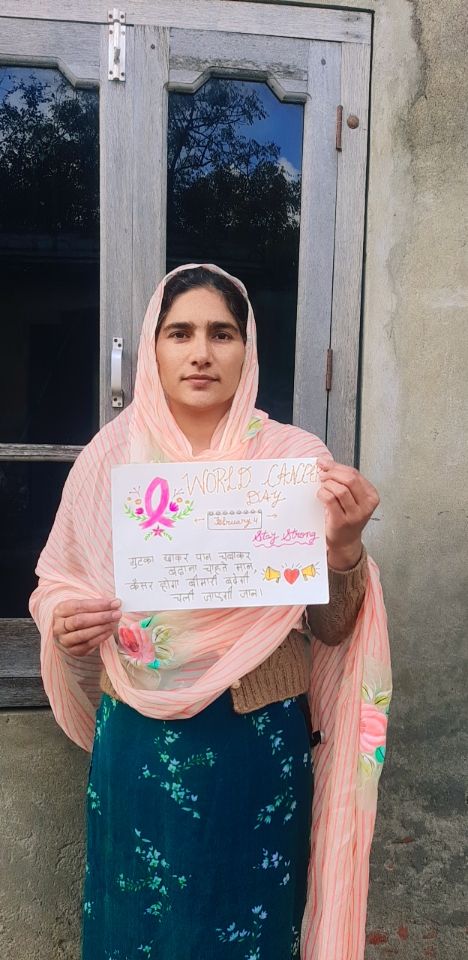 WORLD CANCER
DAY
February 4
Stay Strong
गुटका खाकर पान चबाकर
बढ़ाना चाहते मान,
कैंसर होगा बीमारी बढ़ेगी
चली जाएगी जान।